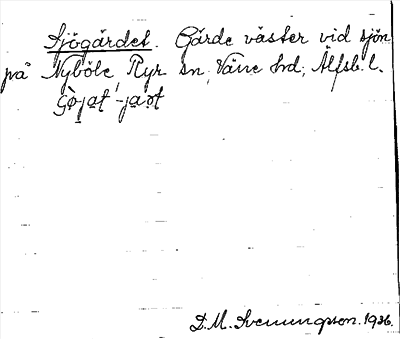 Sjögärdet. Gärde väster vid sjön
på Nyböle, Ryr sn, Väne hd, Älfsb. l.
D. M. Svenungsson. 1936.